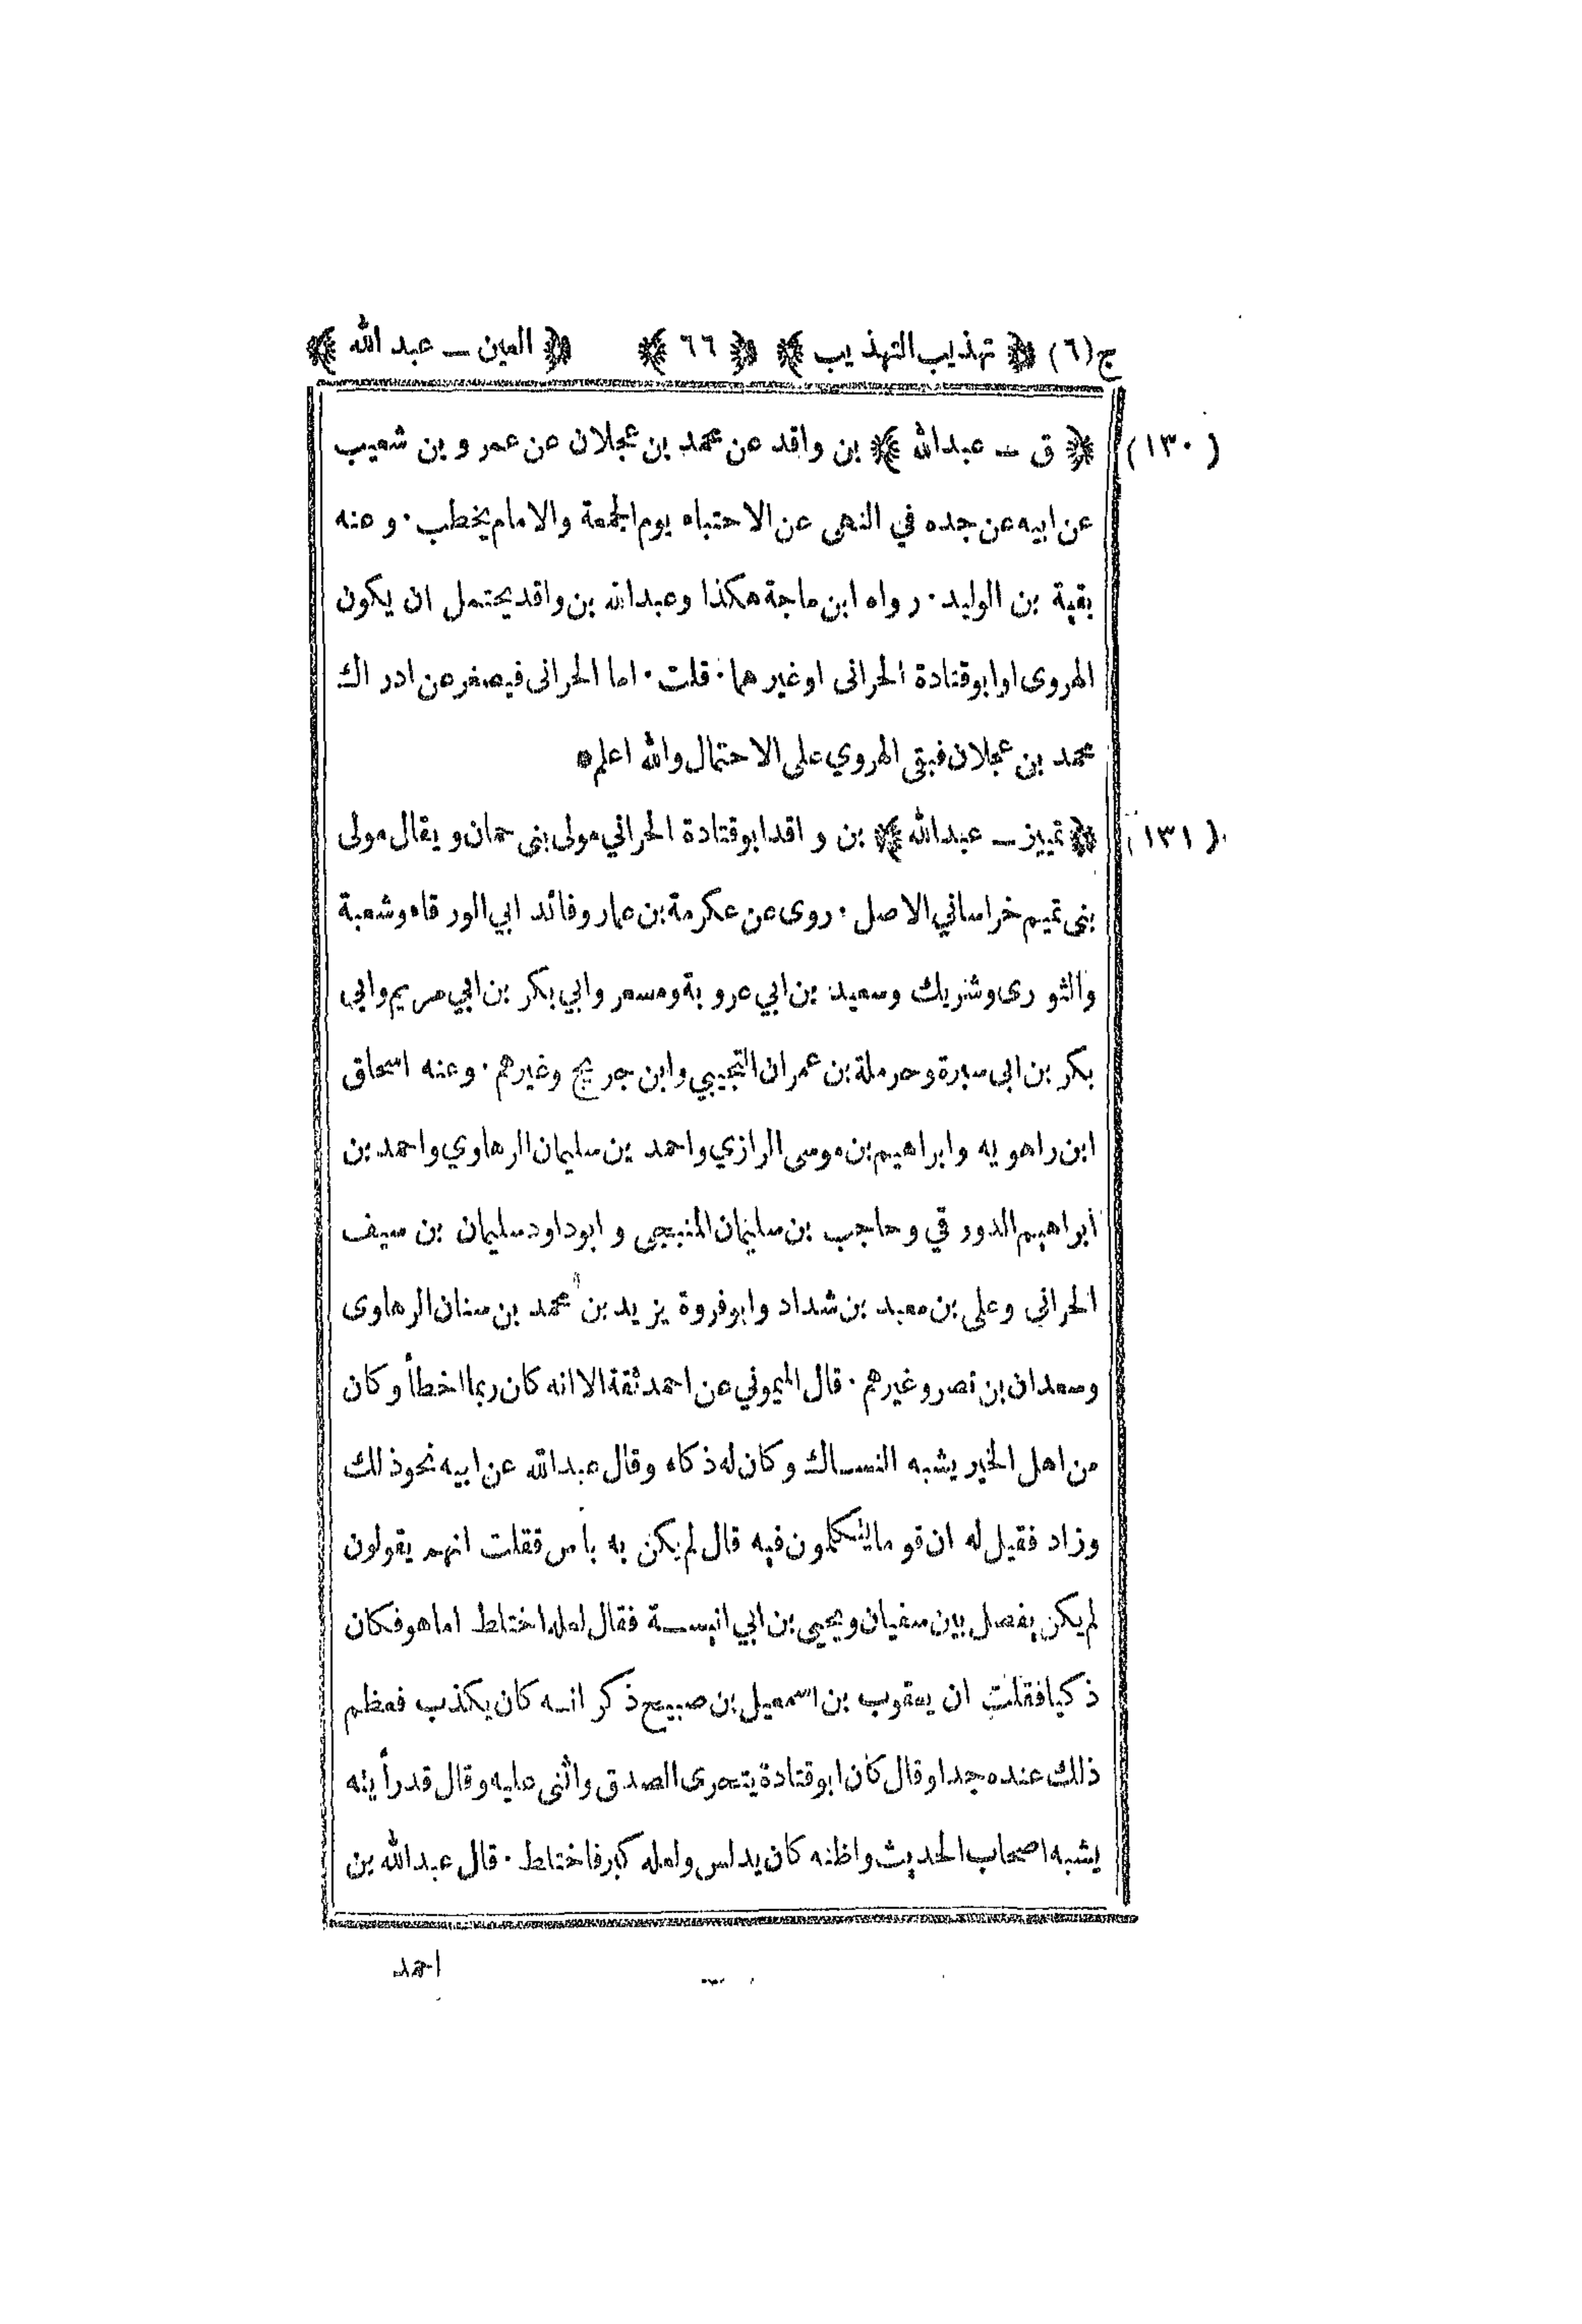 ج(٦) ﴿ تهذيب التهذيب ﴾ ﴿ ٦٦ ﴾ ﴿ العين ـ عبد الله ﴾
(١٣٠) ﴿ ق ـ عبدالله ﴾ بن واقد عن محمد بن عجلان عن عمر و بن شعيب
عن ابيه عن جده في النهى عن الاحتباء يوم الجمعة والامام يخطب · وعنه
بقية بن الوليد · رواه ابن ماجة هكذا وعبدالله بن واقد يحتمل ان يكون
الهروى او ابو قتادة الحرانى او غير هما · قلت · اما الحرانى فيصغر عن ادر اك
محمد بن عجلان فبقى الهروي على الاحتمال والله اعلم ٥
(١٣١) ﴿ تمييز ـ عبدالله ﴾ بن و اقد ابو قتادة الحراني مولى بنى حمان و يقال مولى
بنى تميم خراساني الاصل · روى عن عكرمة بن عمار وفائد ابي الورقاء وشعبة
والثو رى وشريك وسعيد بن ابي عرو بة ومسعر وابي بكر بن ابي مريم وابي
بكر بن ابى سبرة وحرملة بن عمران التجيبي وابن جريج وغيرهم · وعنه اسحاق
ابن راهو يه وابراهيم بن موسى الرازي واحمد بن سليمان الرهاوي واحمد بن
ابراهيم الدور قي وحاجب بن سليمان المنبجى و ابوداود سليمان بن سيف
الحراني وعلى بن معبد بن شداد وابوفروة يز يد بن محمد بن سنان الرهاوى
وسعدان بن نصر وغيرهم · قال الميموني عن احمد ثقة الا انه كان ربما اخطأ وكان
من اهل الخير يشبه النساك وكان له ذكاء وقال عبدالله عن ابيه نحو ذلك
وزاد فقيل له ان قو ما يتكلمون فيه قال لم يكن به بأس فقلت انهم يقولون
لم يكن يفصل بين سفيان ويحيى بن ابي انيسة فقال لعله اختلط اما هو فكان
ذكيا فقلت ان يعقوب بن اسمعيل بن صبيح ذكر انه كان يكذب فعظم
ذلك عنده جدا وقال كان ابو قتادة يتحرى الصدق واثنى عليه وقال قد رأيته
يشبه اصحاب الحديث واظنه كان يدلس ولعله كبر فاختلط · قال عبدالله بن
احمد